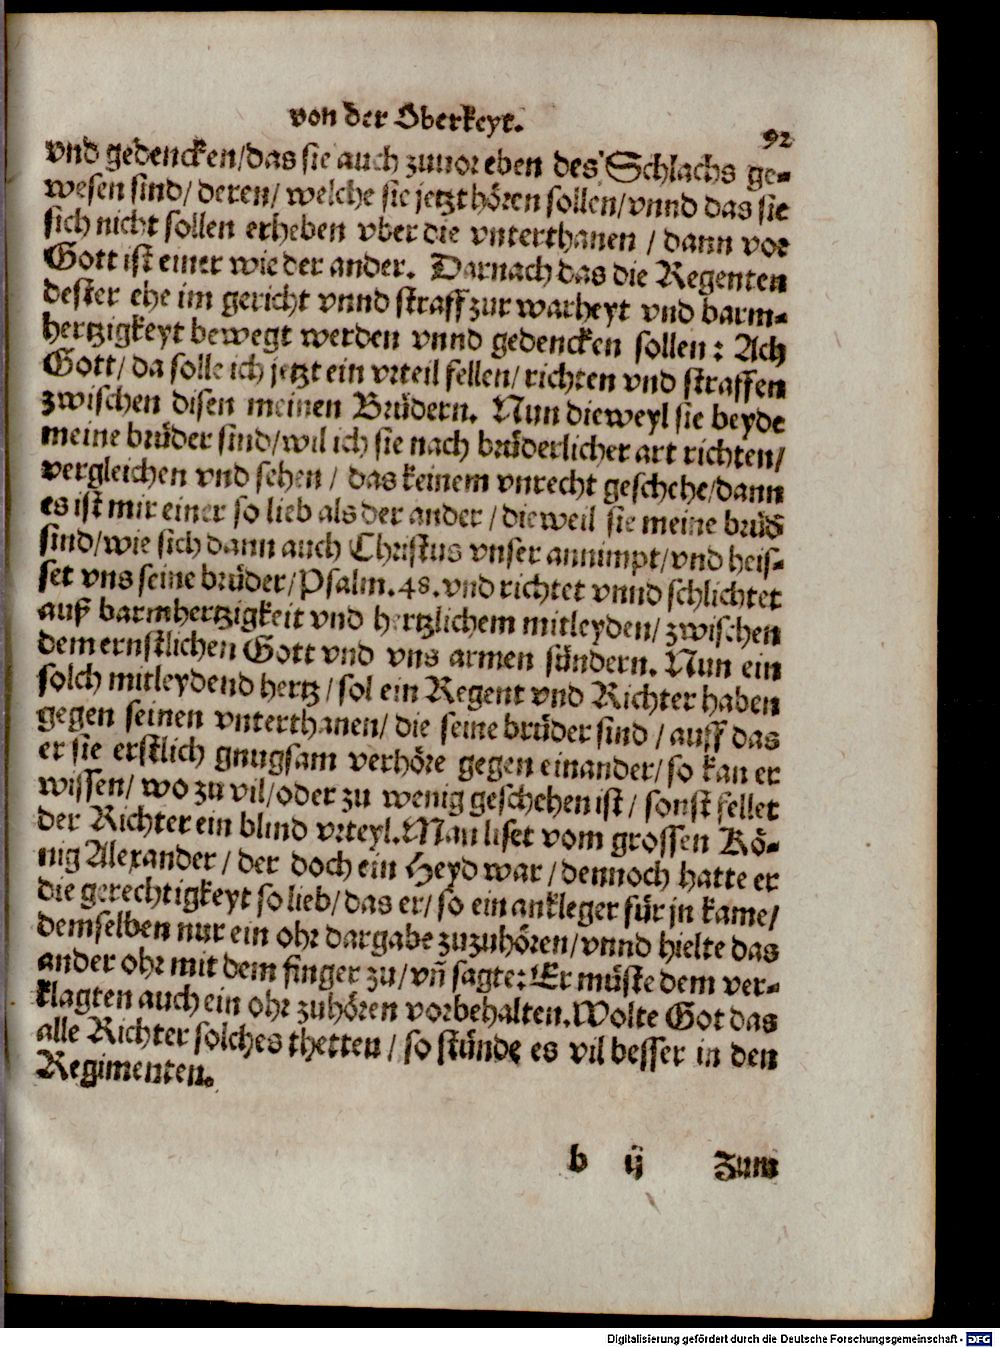 von der Oberkeyt.
92
vnd gedencken/das sie auch zuuor eben des Schlachs ge-
wesen sind/ deren/ welche sie jetzt hören sollen/vnnd das sie
sich nicht sollen erheben vber die vnterthanen / dann vor
Gott ist einer wie der ander. Darnach das die Regenten
dester ehe im gericht vnnd straff zur warheyt vnd barm-
hertzigkeyt bewegt werden vnnd gedencken sollen: Ach
Gott/ da solle ich jetzt ein vrteil fellen/ richten vnd straffen
zwischen disen meinen Brüdern. Nun dieweyl sie beyde
meine brüder sind/wil ich sie nach brüderlicher art richten/
vergleichen vnd sehen / das keinem vnrecht geschehe/dann
es ist mir einer so lieb als der ander / dieweil sie meine brüd
sind/wie sich dann auch Christus vnser annimpt/vnd heis-
set vns seine brüder/Psalm.48.vnd richtet vnnd schlichtet
auß barmhertzigkeit vnd hertzlichem mitleyden/ zwischen
dem ernstlichen Gott vnd vns armen sündern. Nun ein
solch mitleydend hertz / sol ein Regent vnd Richter haben
gegen seinen vnterthanen/ die seine brüder sind / auff das
er sie erstlich gnugsam verhöre gegen einander/ so kan er
wissen/ wo zu vil/oder zu wenig geschehen ist / sonst fellet
der Richter ein blind vrteyl.Man liset vom grossen Kö-
nig Alexander / der doch ein Heyd war / dennoch hatte er
die gerechtigkeyt so lieb/das er/ so ein ankleger für jn kame/
demselben nur ein ohr dargabe zuzuhören/vnnd hielte das
ander ohr mit dem finger zu/vñ sagte: Er müste dem ver-
klagten auch ein ohr zuhören vorbehalten.Wolte Got das
alle Richter solches thetten / so stünde es vil besser in den
Regimenten.
b ij Zum
Digitalisierung gefördert durch die Deutsche Forschungsgemeinschaft - DFG